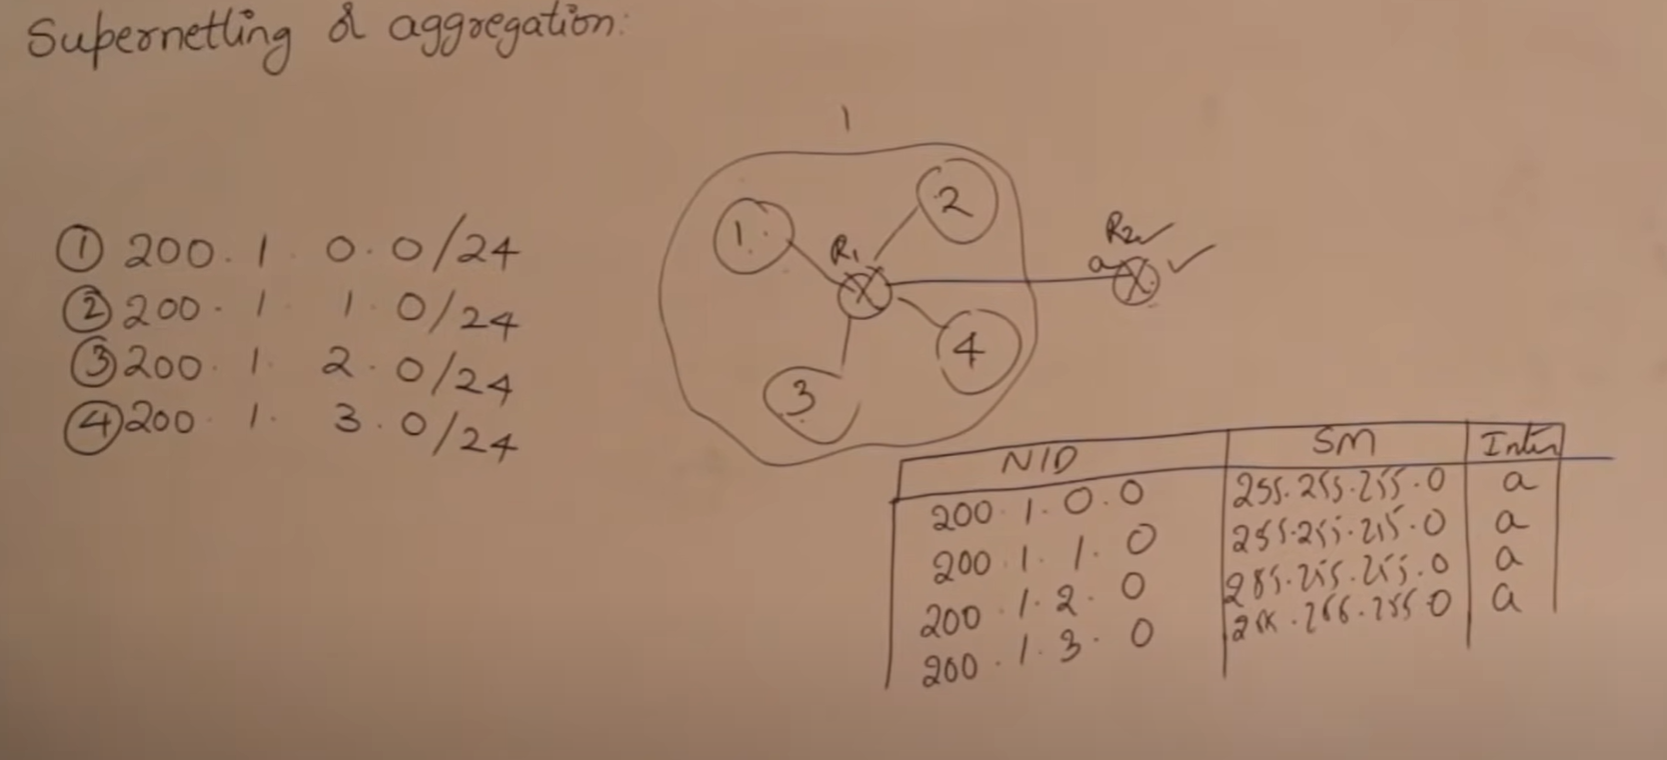 Supernetting & aggregation:
1
① 200. 1. 0.0/24
② 200. 1. 1.0/24
③ 200. 1. 2.0/24
④ 200. 1. 3.0/24
1.
2
R1
R2
a
3
4
NID SM
200.1.0.0 255.255.255.0 a
200.1.1.0 255.255.255.0 a
200.1.2.0 255.255.255.0 a
200.1.3.0 255.0 a